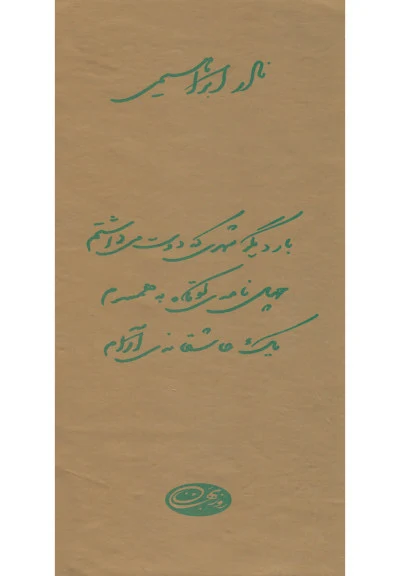 نادر ابراهیمی
بار دیگر شهری که دوست می‌داشتم
چهل نامه‌ی کوتاه به همسرم
یک عاشقانه‌ی آرام
روزبهان